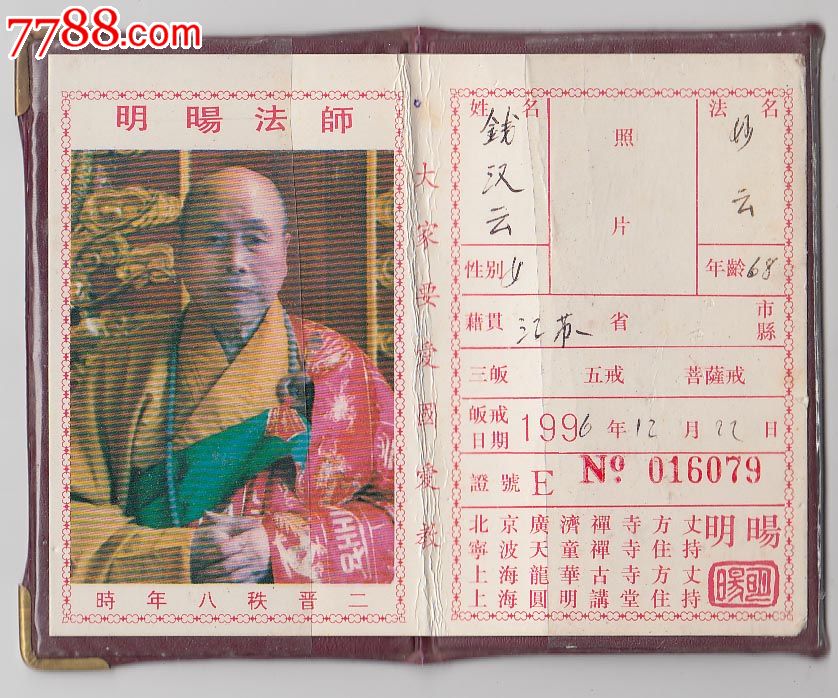 7788.com
明暘法師
時年八秩晋二
大家要愛國愛教
姓名 钱汉云
照片
法名 妙云
性别 女
年齡 68
藉貫 江苏 省 市縣
三皈 五戒 菩薩戒
皈戒日期 1996年12月22日
證號 E Nº 016079
北京廣濟禪寺方丈
寧波天童禪寺住持
上海龍華古寺方丈
上海圓明講堂住持
明暘
明暘